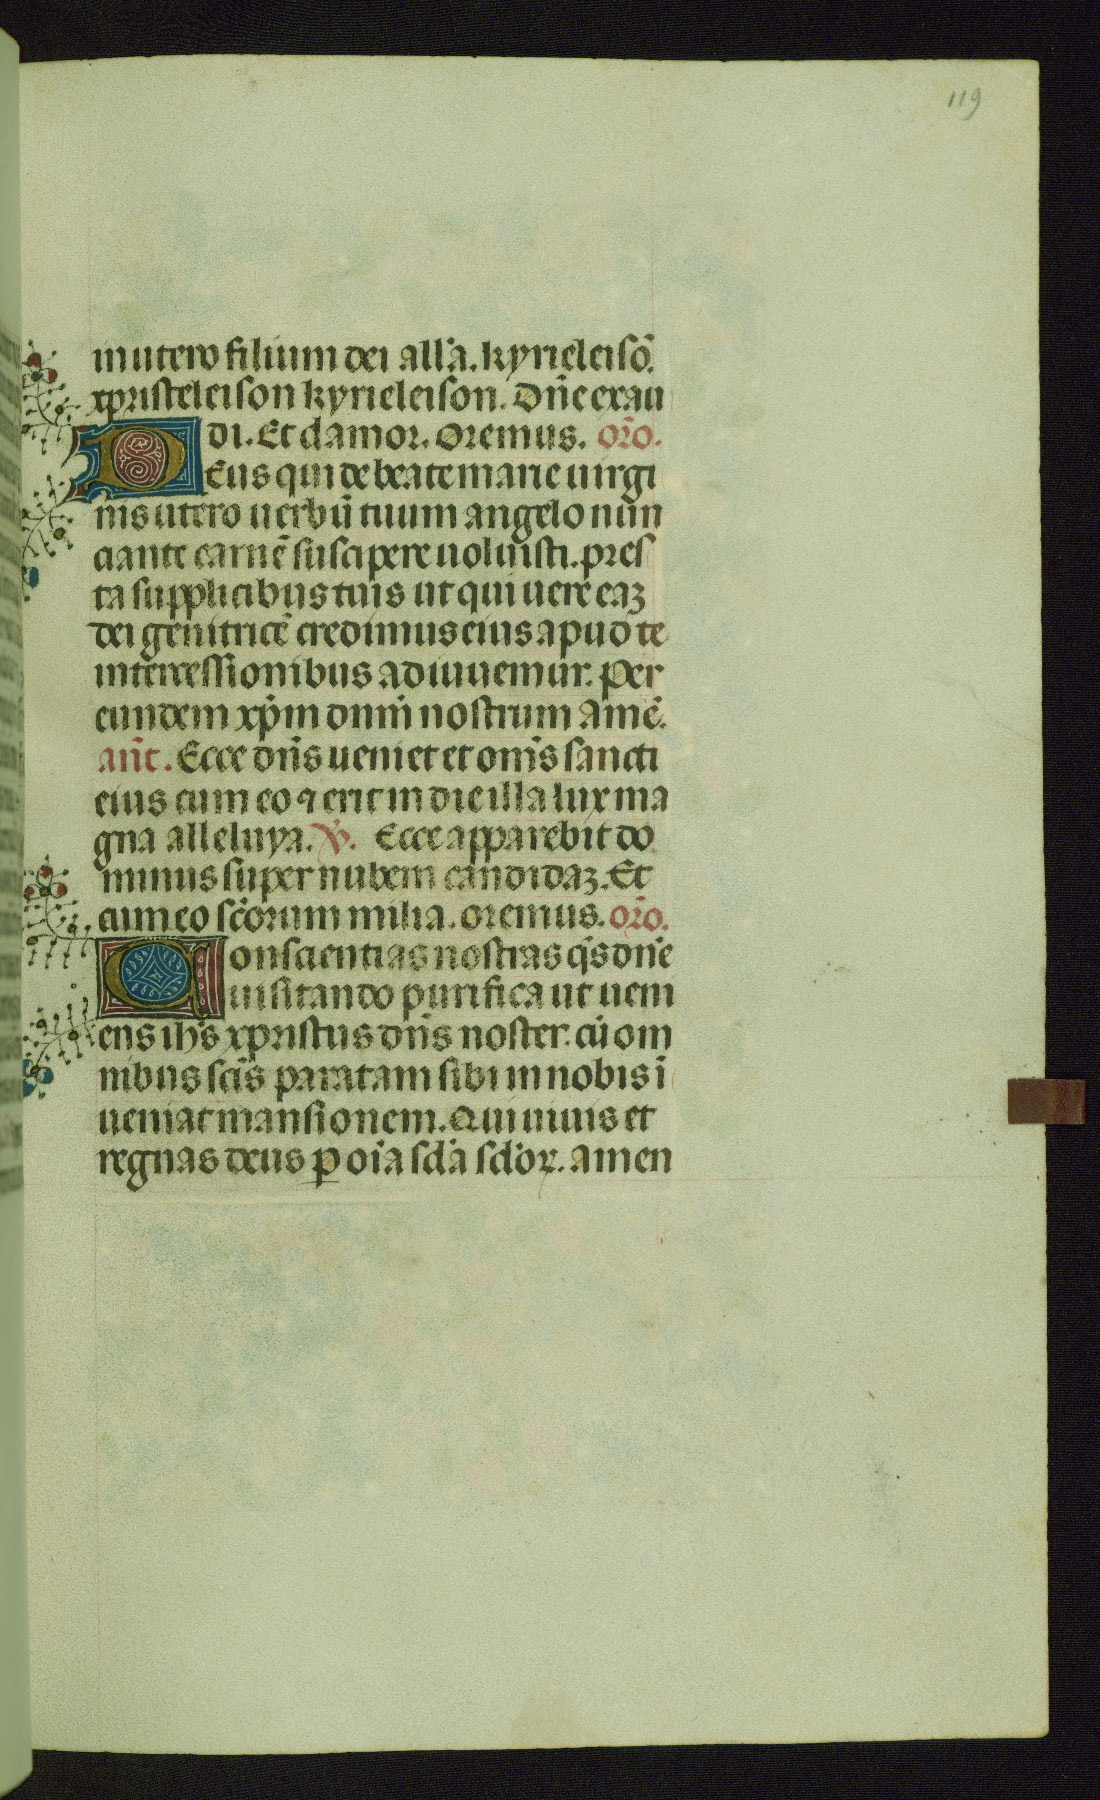 119
in utero filium dei all'a. kyrieleisō.
xpristeleison kyrieleison. Dn̄e exau
di. Et clamor. Oremus. or̄o.
Deus qui de beate marie uirgi
nis utero uerbū tuum angelo nun
ciante carnē suscipere uoluisti. pres
ta supplicibus tuis ut qui uere eaꝫ
dei genitricē credimus eius apud te
intercessionibus adiuuemur. Per
eundem xp̄m dnm̄ nostrum amē.
an̄t. Ecce dn̄s ueniet et om̄s sancti
eius cum eo ⁊ erit in die illa lux ma
gna alleluya. ℣. Ecce apparebit do
minus super nubem candidaꝫ. Et
cum eo sc̄orum milia. oremus. or̄o.
Conscientias nostras q̄s dn̄e
uisitando purifica ut ueni
ens ih̄s xpristus dn̄s noster. cū om
nibus sc̄is paratam sibi in nobis ī
ueniat mansionem. Qui uiuis et
regnas deus ꝑ oīa sc̄la sc̄loꝝ. amen